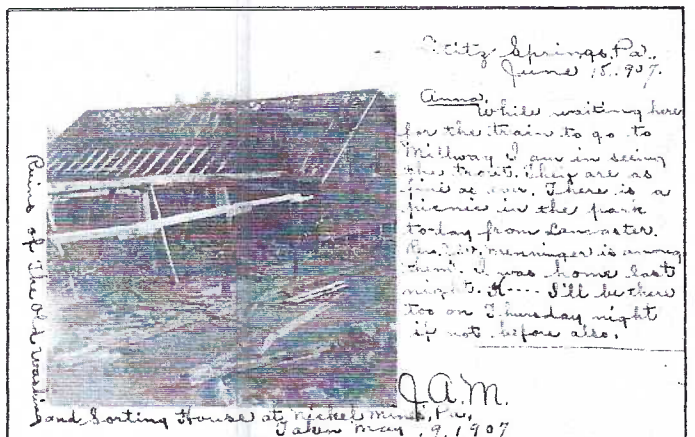 Lititz Springs, Pa.
June 15, 1907.
Anna,
While waiting here
for the train to go to
Millway I am in seeing
the trout. They are as
fine as ever. There is a
picnic in the park
to-day from Lancaster.
Menninger is among
them. I was home last
night. I'll be there
too on Thursday night
if not before also.
J.A.M.
Ruins of The Old Washing
and Sorting House at Nickel Mines, Pa.
Taken May 9, 1907